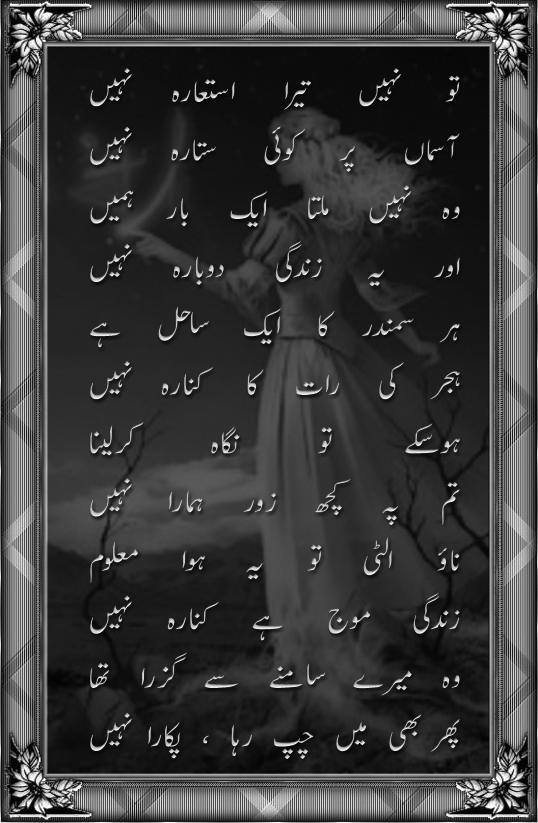 تو نہیں تیرا استعارہ نہیں
آسماں پر کوئی ستارہ نہیں
وہ نہیں ملتا ایک بار ہمیں
اور یہ زندگی دوبارہ نہیں
ہر سمندر کا ایک ساحل ہے
ہجر کی رات کا کنارہ نہیں
ہوسکے تو نگاہ کرلینا
تم پہ کچھ زور ہمارا نہیں
ناؤ الٹی تو یہ ہوا معلوم
زندگی موج ہے کنارہ نہیں
وہ میرے سامنے سے گزرا تھا
پھر بھی میں چپ رہا ، پکارا نہیں